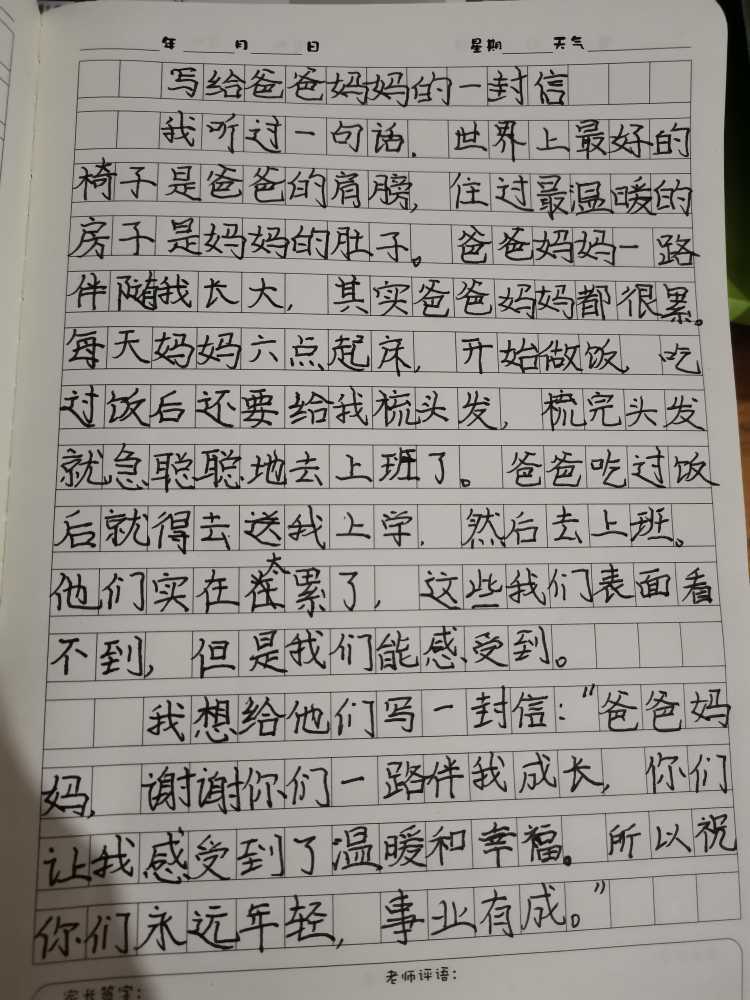 年 月 日 星期 天气
写给爸爸妈妈的一封信
我听过一句话，世界上最好的
椅子是爸爸的肩膀，住过最温暖的
房子是妈妈的肚子。爸爸妈妈一路
伴随我长大，其实爸爸妈妈都很累。
每天妈妈六点起床，开始做饭，吃
过饭后还要给我梳头发，梳完头发
就急聪聪地去上班了。爸爸吃过饭
后就得去送我上学，然后去上班。
他们实在太累了，这些我们表面看
不到，但是我们能感受到。
我想给他们写一封信：“爸爸妈
妈，谢谢你们一路伴我成长，你们
让我感受到了温暖和幸福。所以祝
你们永远年轻，事业有成。”
家长签字： 老师评语：